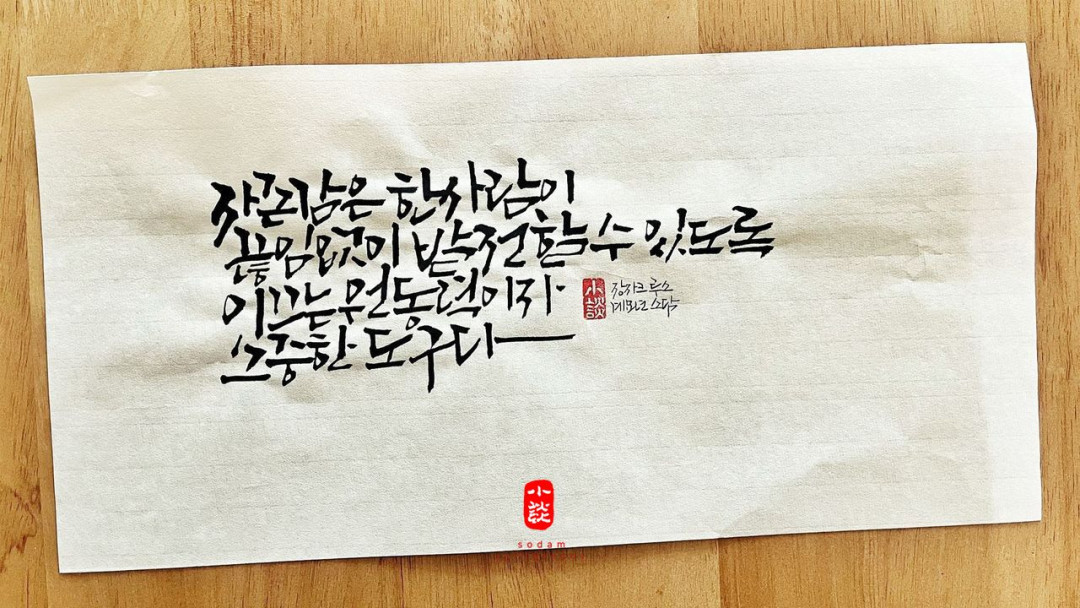 자존감은 한사람이
끊임없이 발전할 수 있도록
이끄는 원동력이자
소중한 도구다
小談
장자크 루소
小談
sodam